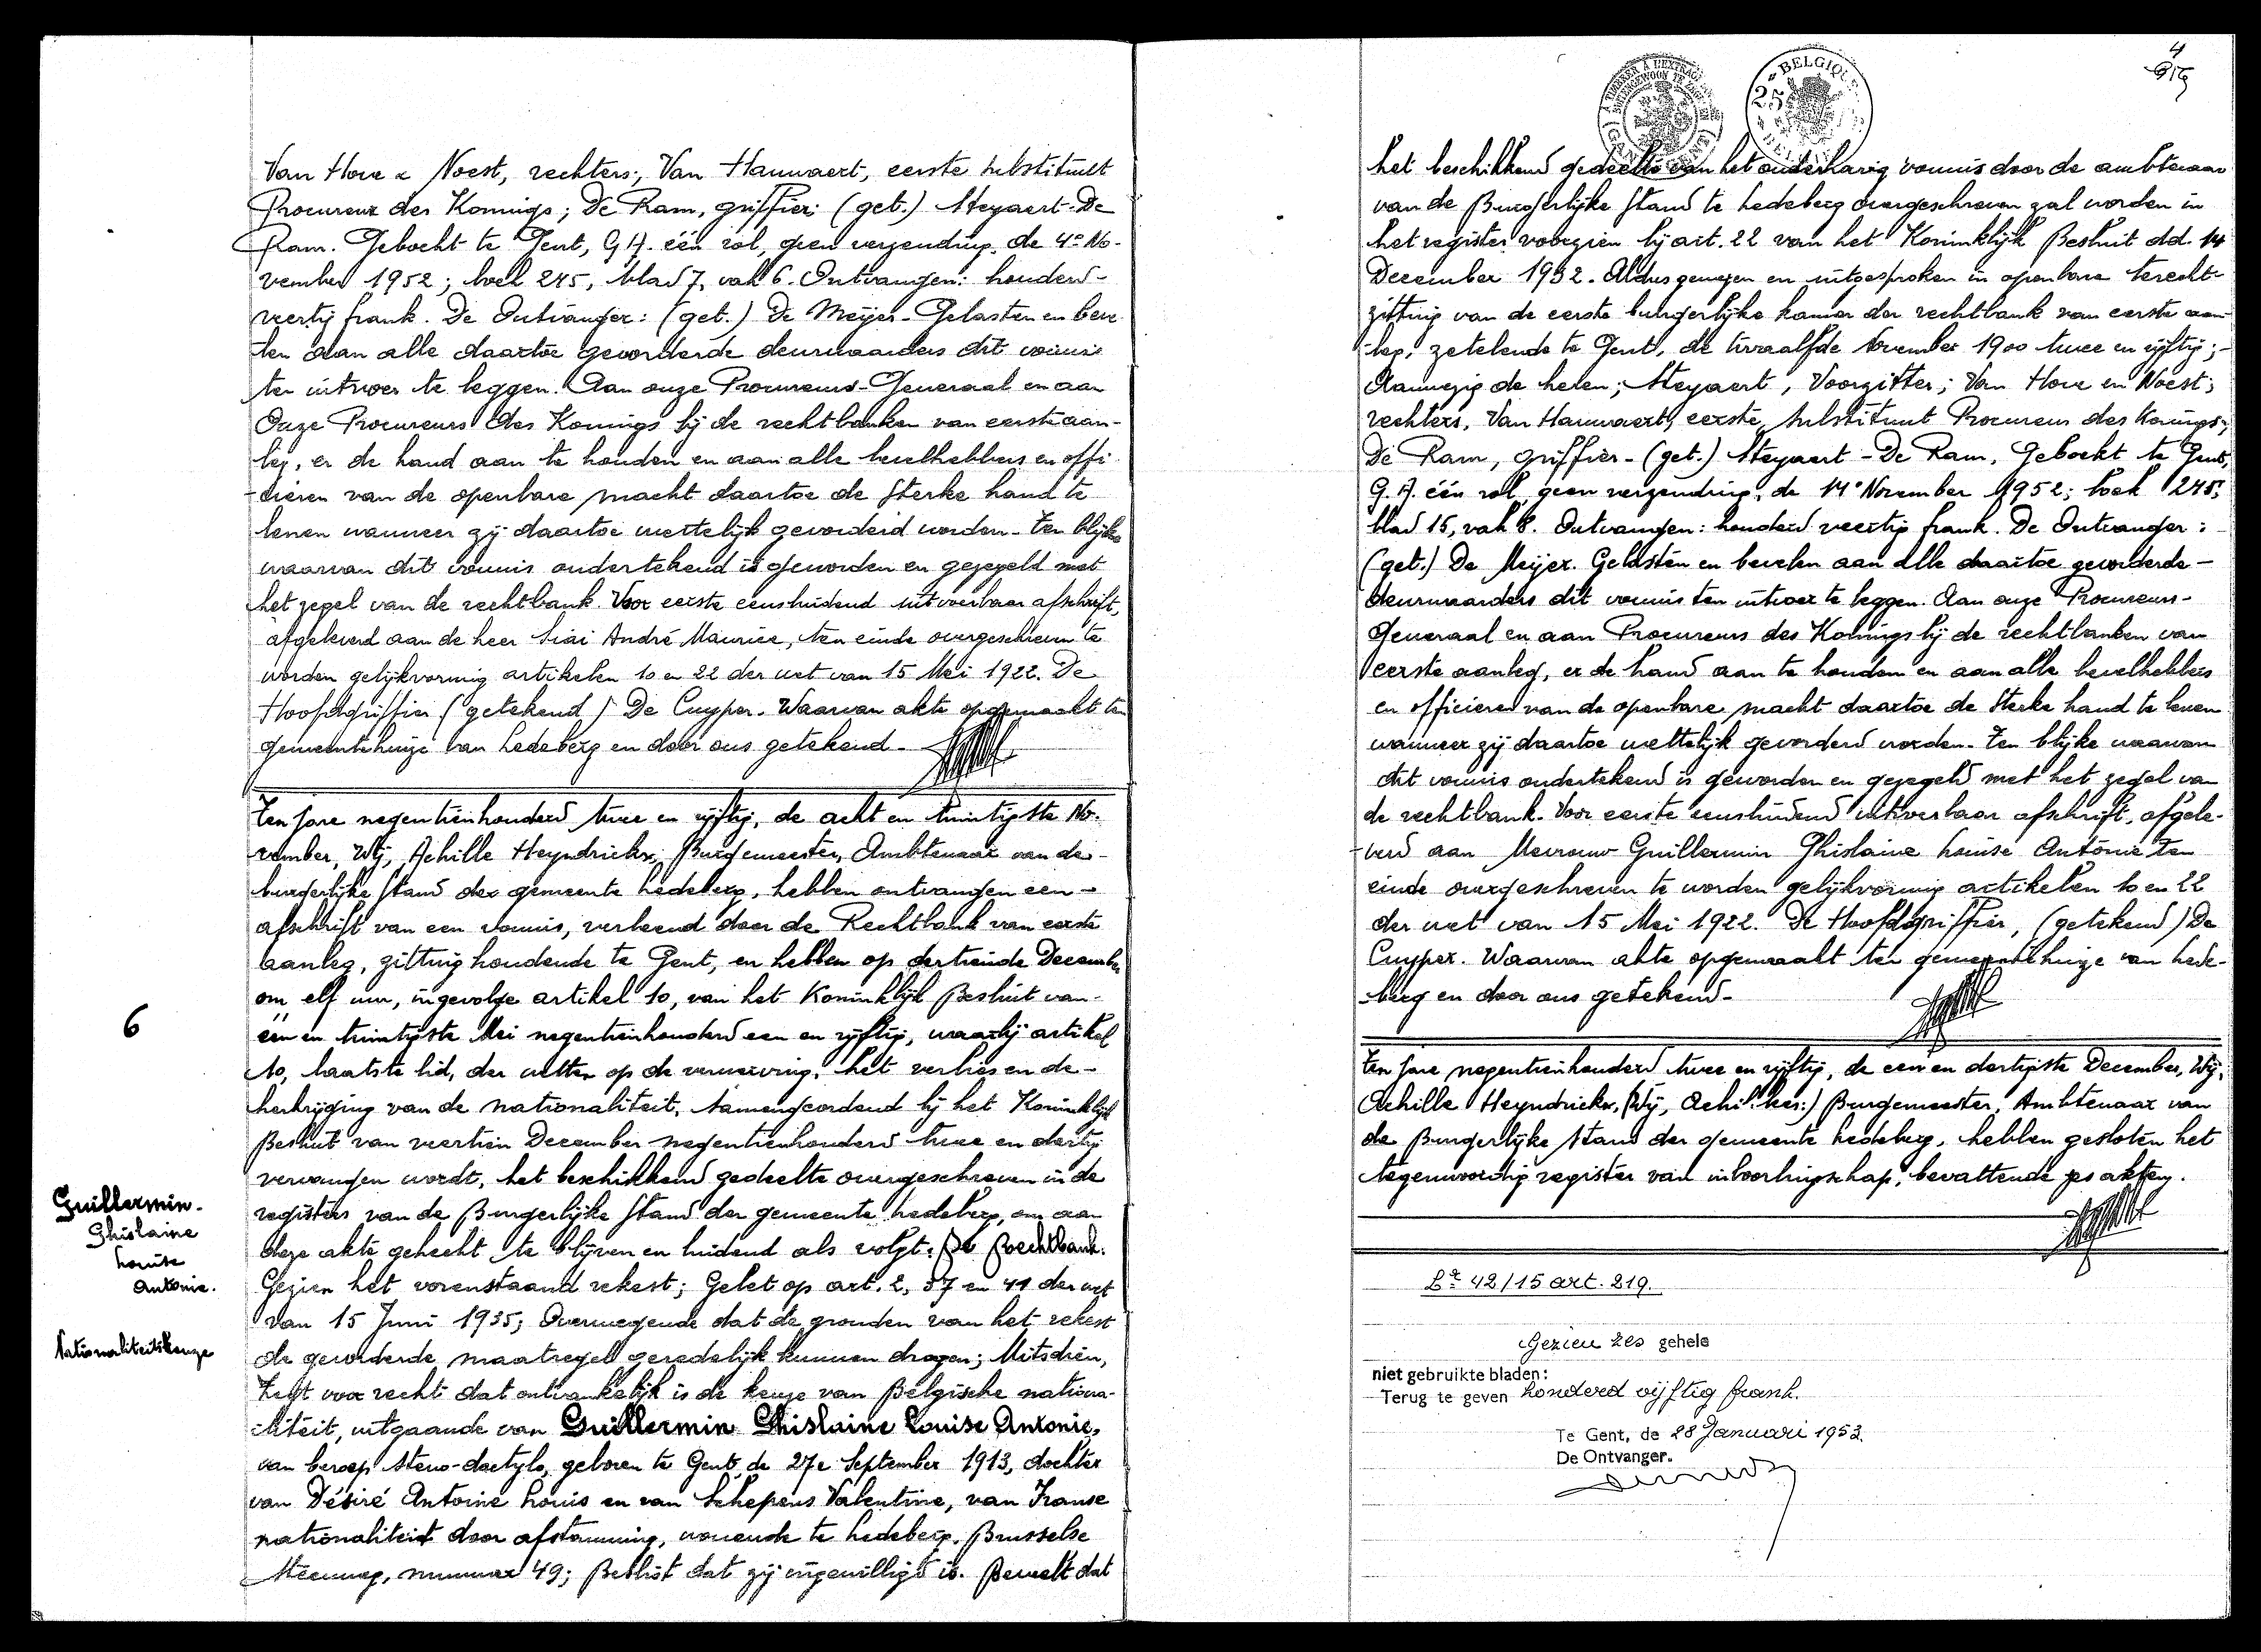 Van Hove & Noest, rechters; Van Hauwaert, eerste substituut
Procureur des Konings; De Ram, griffier; (get.) Steyaert - De
Ram. Geboekt te Gent, G.A. één rol, geen verzending, de 4e No-
vember 1952; boek 245, blad 7, vak 6. Ontvangen: honderd
veertig frank. De Ontvanger: (get.) De Meyer - Gelasten en beve
len aan alle daartoe gevorderde deurwaarders dit vonnis
ten uitvoer te leggen. Aan onze Procureurs-Generaal en aan
Onze Procureurs des Konings bij de rechtbanken van eerste aan-
leg, er de hand aan te houden en aan alle bevelhebbers en offi
cieren van de openbare macht daartoe de sterke hand te
lenen wanneer zij daartoe wettelijk gevorderd worden - Ten blijke
waarvan dit vonnis ondertekend is geworden en gezegeld met
het zegel van de rechtbank. Voor eerste eensluidend uitvoerbaar afschrift,
afgeleverd aan de heer André Maurice, ten einde overgeschreven te
worden gelijkvormig artikelen 10 en 22 der wet van 15 Mei 1922. De
Hoofdgriffier (getekend) De Cuyper. Waarvan akte opgemaakt ten
gemeentehuize van Ledeberg en door ons getekend -
Ten jare negentienhonderd twee en vijftig, de acht en twintigste No-
vember, Wij, Achille Heyndrickx, Burgemeester, Ambtenaar van de -
burgerlijke stand der gemeente Ledeberg, hebben ontvangen een -
afschrift van een vonnis, verleend door de Rechtbank van eerste
aanleg, zitting houdende te Gent, en hebben op dertiende December
om elf uur, ingevolge artikel 10, van het Koninklijk Besluit van -
één en twintigste Mei negentienhonderd een en vijftig, waarbij artikel
10, laatste lid, der wetten op de verwerving, het verlies en de -
herkrijging van de nationaliteit, samengeordend bij het Koninklijk
Besluit van veertien December negentienhonderd twee en dertig
vervangen wordt, het beschikkend gedeelte overgeschreven in de
registers van de Burgerlijke Stand der gemeente Ledeberg, om aan
deze akte gehecht te blijven en luidend als volgt: De Rechtbank.
6
Guillermin -
Ghislaine
Louise
Antonie.
Nationaliteitskeuze
Gezien het vorenstaand rekest; Gelet op art. 2, 37 en 41 der wet
van 15 Juni 1935; Overwegende dat de gronden van het rekest
de gevorderde maatregel geredelijk kunnen dragen; Mitsdien,
Zegt voor recht dat ontvankelijk is de keuze van Belgische nationa-
liteit, uitgaande van Guillermin Ghislaine Louise Antonie,
van beroep steno-dactylo, geboren te Gent, de 27e September 1913, dochter
van Désiré Antoine Louis en van Schepens Valentine, van Franse
nationaliteit door afstamming, wonende te Ledeberg, Brusselse
Steenweg, nummer 49; Beslist dat zij ingewilligd is. Beveelt dat
4
A TIMBRER A L'EXTRAORD
BUITENGEWOON TE ZEGELEN
BELGIQUE
25
BELGIE
het beschikkend gedeelte van het onderhavig vonnis door de ambtenaar
van de Burgerlijke Stand te Ledeberg overgeschreven zal worden in
het register voorzien bij art. 22 van het Koninklijk Besluit dd. 14
December 1932. Aldus gewezen en uitgesproken in openbare terecht-
zitting van de eerste burgerlijke kamer der rechtbank van eerste aan-
leg, zetelende te Gent, de twaalfde November 1900 twee en vijftig; -
Aanwezig de heren; Steyaert, Voorzitter; Van Hove en Noest;
rechters, Van Hauwaert, eerste substituut Procureur des Konings;
De Ram, griffier - (get.) Steyaert - De Ram, Geboekt te Gent,
G.A. één rol, geen verzending, de 14e November 1952; boek 245;
blad 15, vak 8. Ontvangen: honderd veertig frank. De Ontvanger: -
(get.) De Meijer. Gelasten en bevelen aan alle daartoe gevorderde -
deurwaarders dit vonnis ten uitvoer te leggen. Aan onze Procureurs-
Generaal en aan Procureurs des Konings bij de rechtbanken van
eerste aanleg, er de hand aan te houden en aan alle bevelhebbers
en officieren van de openbare macht daartoe de sterke hand te lenen
wanneer zij daartoe wettelijk gevorderd worden - Ten blijke waarvan
dit vonnis ondertekend is geworden en gezegeld met het zegel van
de rechtbank. Voor eerste eensluidend uitvoerbaar afschrift, afgele-
verd aan Mevrouw Guillermin Ghislaine Louise Antonie ten
einde overgeschreven te worden gelijkvormig artikelen 10 en 22
der wet van 15 Mei 1922. De Hoofdgriffier, (getekend) De
Cuyper. Waarvan akte opgemaakt ten gemeentehuize van Lede-
berg en door ons getekend -
Ten jare negentienhonderd twee en vijftig, de een en dertigste December, Wij,
Achille Heyndrickx, Burgemeester, Ambtenaar van
de Burgerlijke Stand der gemeente Ledeberg, hebben gesloten het
tegenwoordig register van inboorlingschap, bevattende zes akten.
42/15 art. 219.
Gezien zes gehele
niet gebruikte bladen:
Terug te geven honderd vijftig frank.
Te Gent, de 28 Januari 1953.
De Ontvanger.